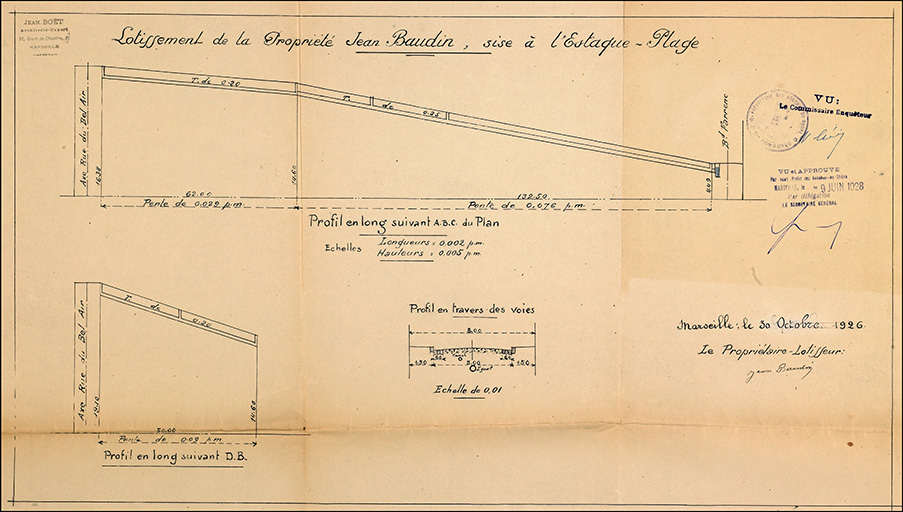 JEAN BOËT
Architecte-Expert
MARSEILLE
Lotissement de la Propriété Jean Baudin, sise à l'Estaque-Plage
VU:
Le Commissaire Enquêteur
VU et APPROUVÉ
MARSEILLE, le 9 JUIN 1928
Par délégation
LE SECRÉTAIRE GÉNÉRAL
Ave Rue du Bel Air
T. de 0.20
T. de 0.25
Bd Farrenc
16.38
14.60
62.00
132.50
Pente de 0.029 p.m
Pente de 0,076 p.m.
Profil en long suivant A.B.C. du Plan
Echelles
Longueurs = 0.002 p.m.
Hauteurs = 0.005 p.m.
Ave Rue du Bel Air
T. de 0.20
19.10
14.60
50.00
Pente de 0.09 p.m
Profil en long suivant D.B.
Profil en travers des voies
8.00
1.50
5.00
1.50
Egout
Echelle de 0,01
Marseille: le 30 Octobre 1926
Le Propriétaire-Lotisseur:
Jean Baudin